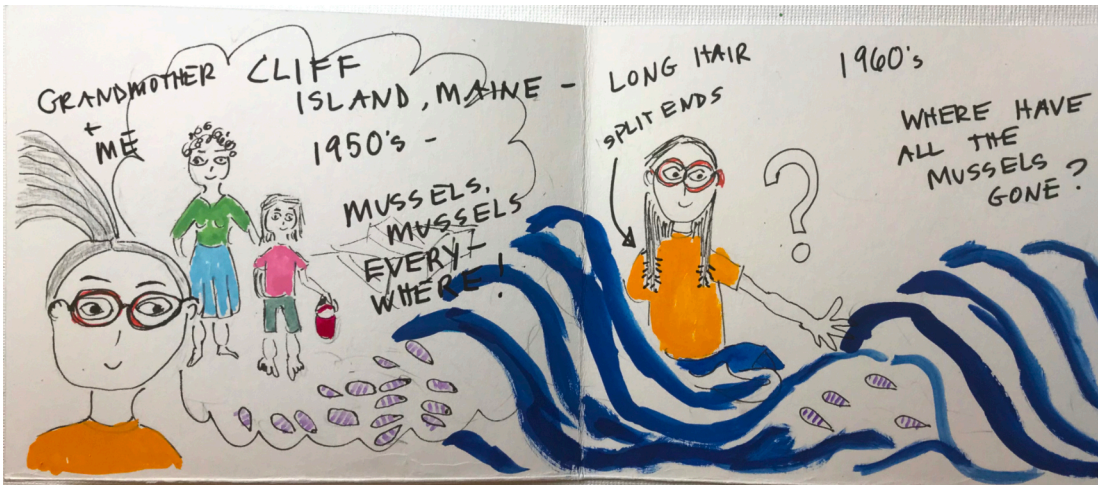 GRANDMOTHER
+
ME
CLIFF
ISLAND, MAINE -
1950's -
MUSSELS,
MUSSELS
EVERY-
WHERE!
LONG HAIR
SPLIT ENDS
1960's
WHERE HAVE
ALL THE
MUSSELS
GONE?
?